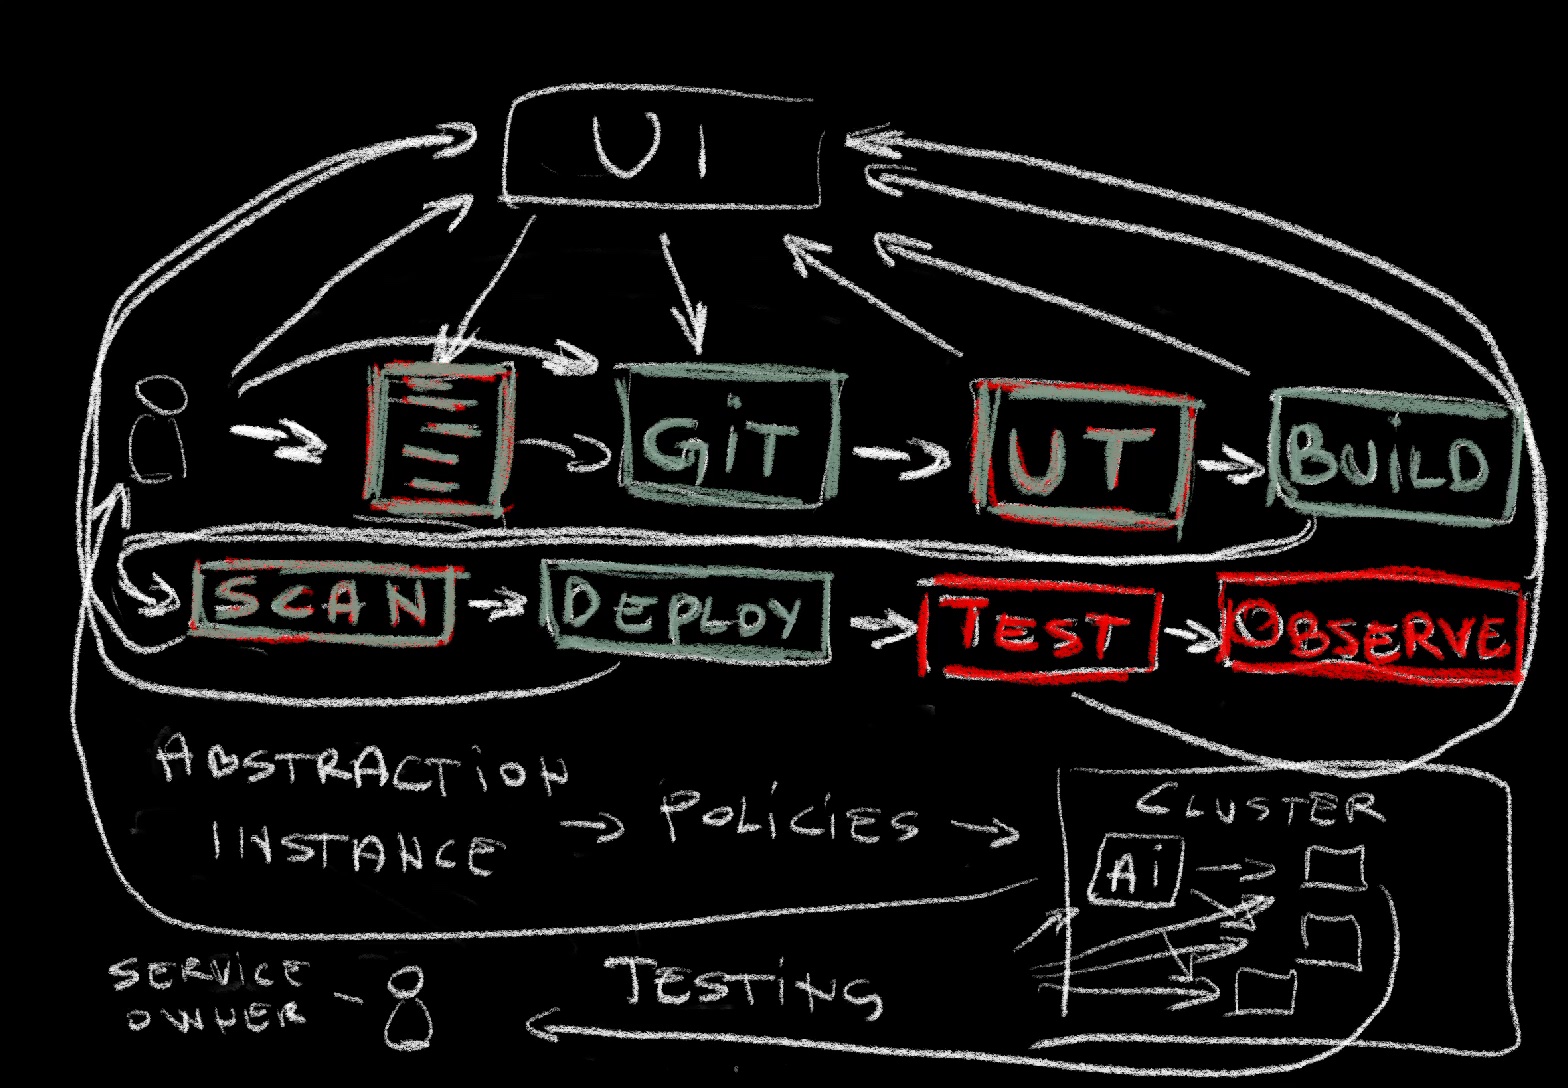 UI
GiT
UT
BUiLD
SCAN
DEPLOY
TEST
OBSERVE
ABSTRACTiON
INSTANCE
POLiCiES
CLUSTER
Ai
SERViCE
OWNER
TESTiNG